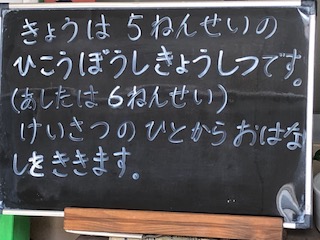 きょうは５ねんせいの
ひこうぼうしきょうしつです。
(あしたは６ねんせい)
けいさつのひとからおはな
しをききます。